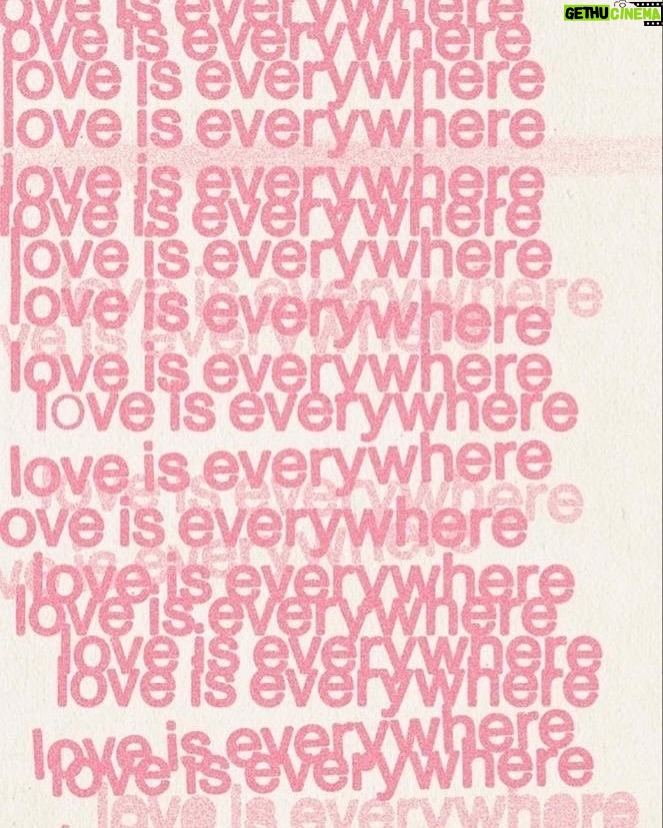 GETHU CINEMA
love is everywhere
love is everywhere
love is everywhere
love is everywhere
love is everywhere
love is everywhere
love is everywhere
love is everywhere
love is everywhere
ve is everywhere
love is everywhere
love is everywhere
love is everywhere
love is everywhere
ove is everywhere
ve is everywhere
love is everywhere
love is everywhere
love is everywhere
love is everywhere
love is everywhere
love is everywhere
love is everywhere